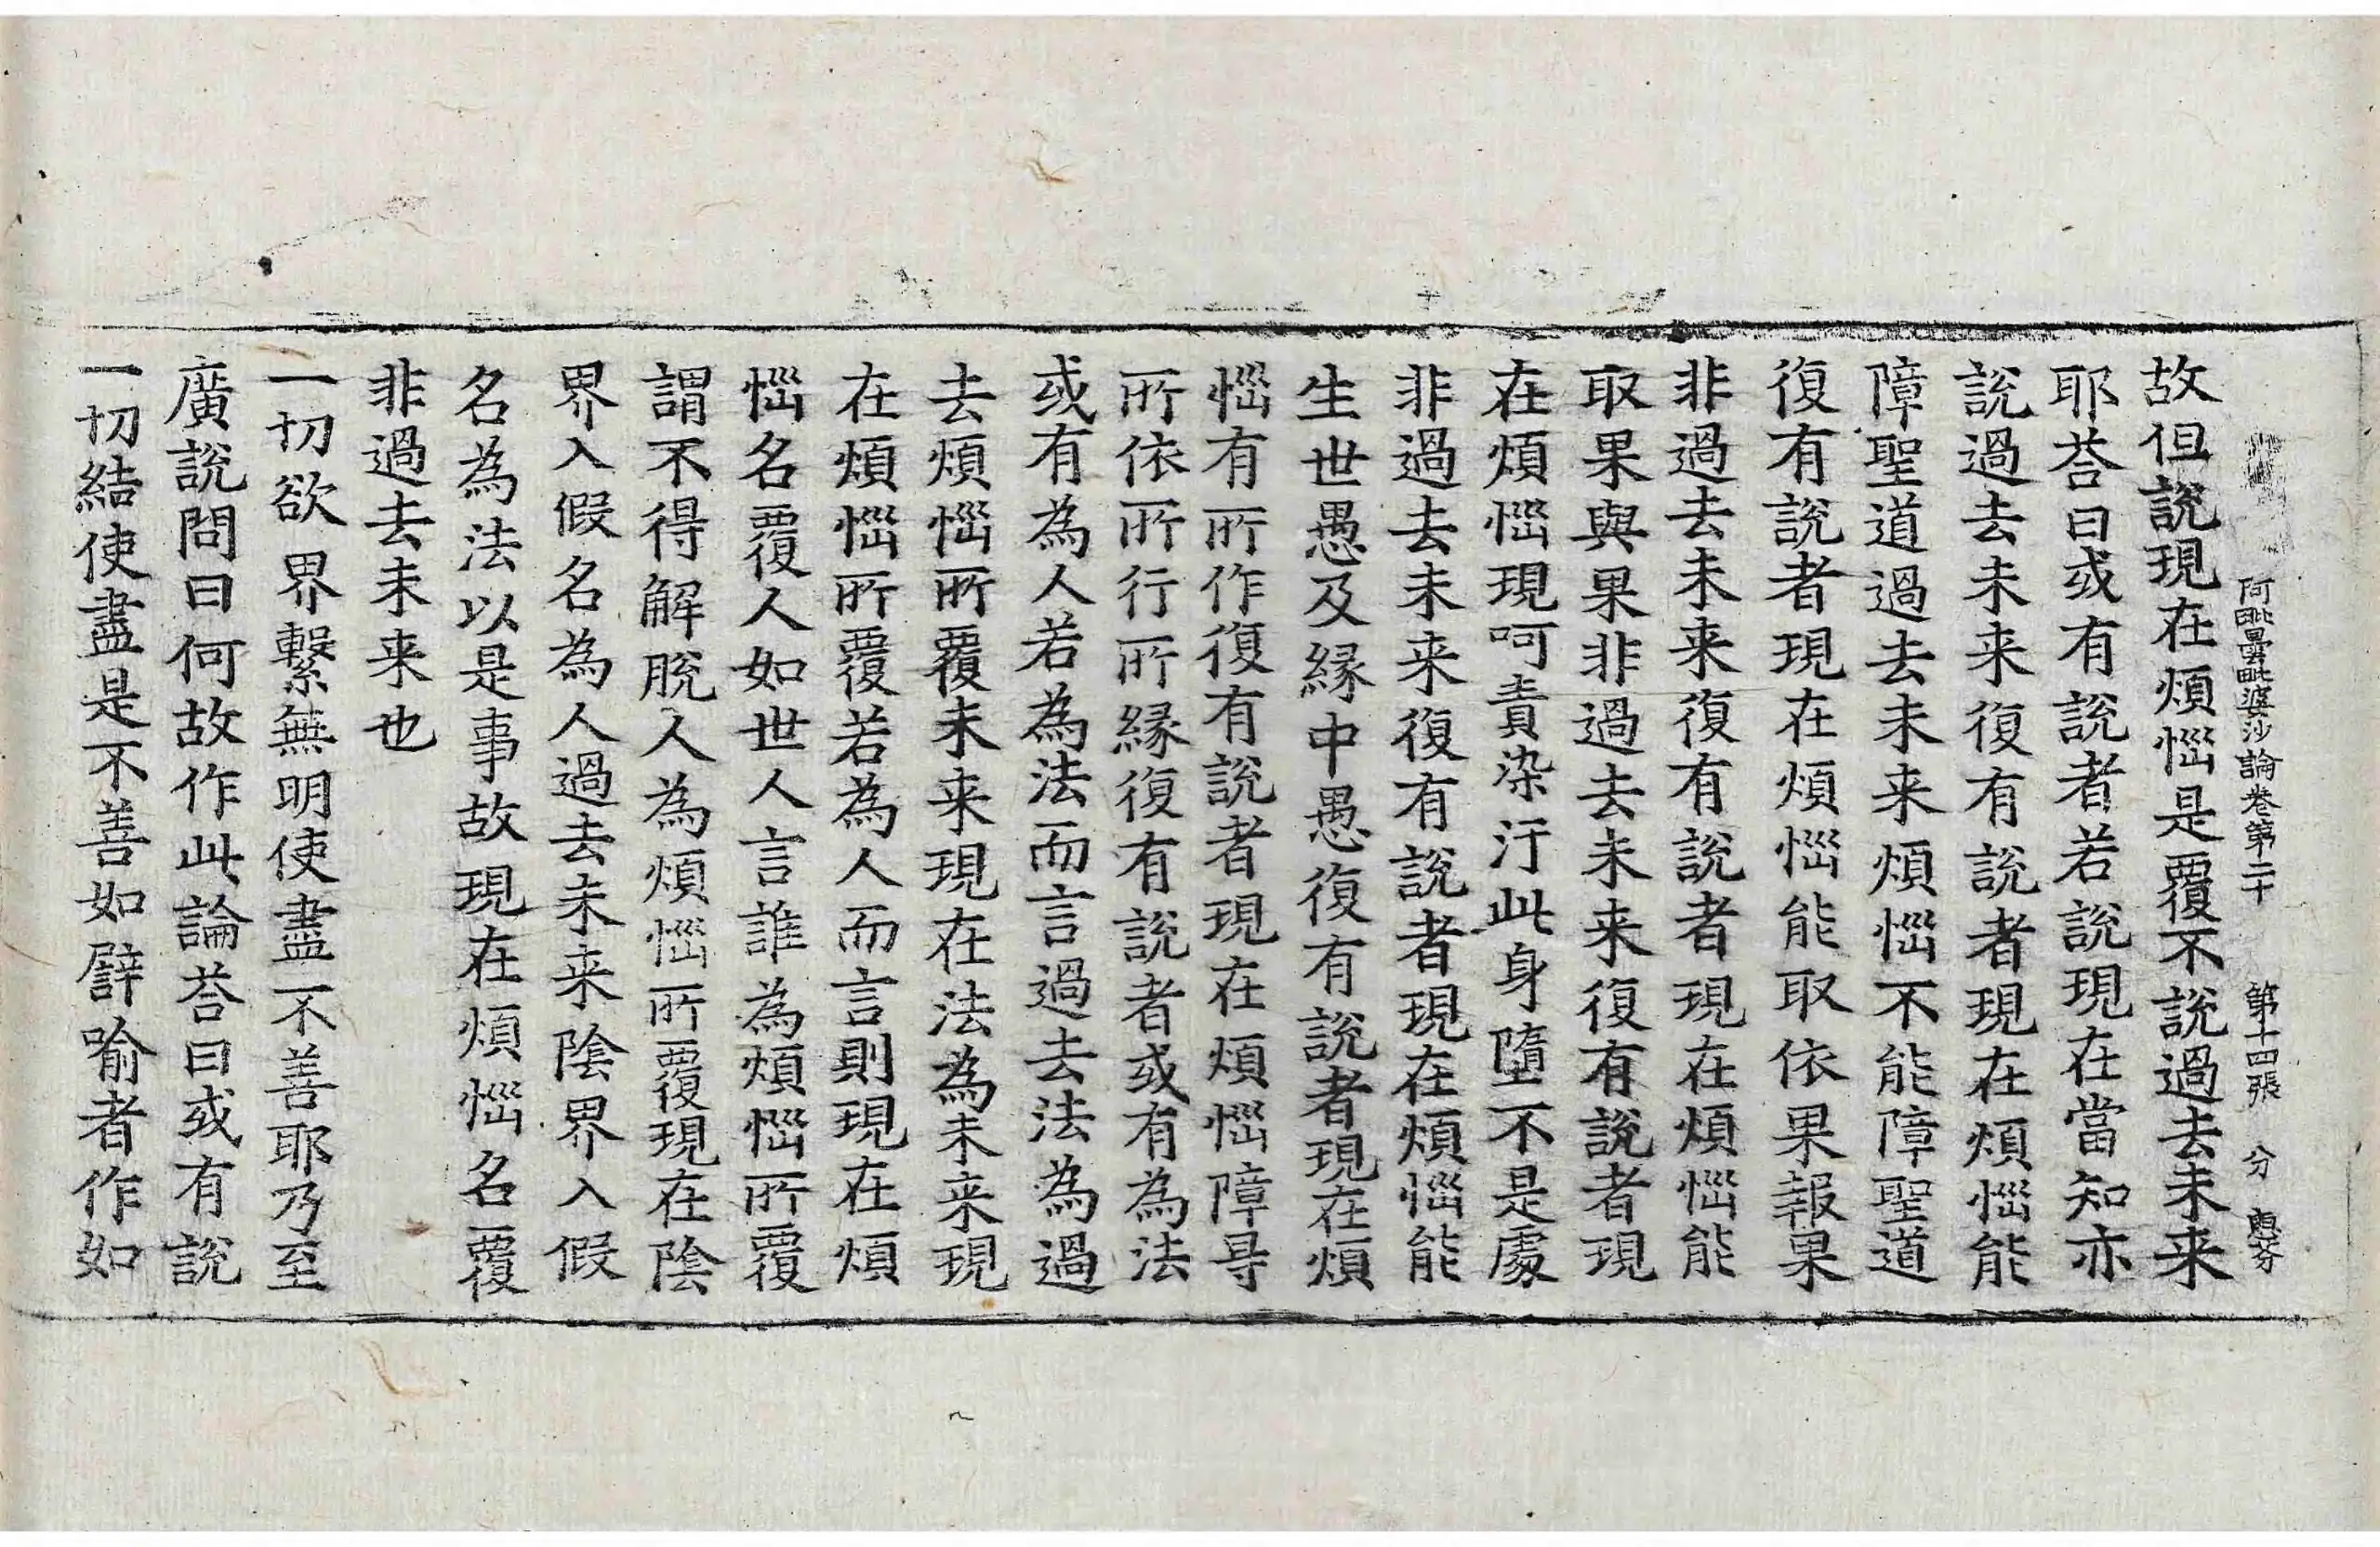 阿毗曇毗婆沙論卷第二十　第十四張　分
故但說現在煩惱是覆不說過去未来
耶荅曰或有說者若說現在當知亦
說過去未来復有說者現在煩惱能
障聖道過去未来煩惱不能障聖道
復有說者現在煩惱能取依果報果
非過去未来復有說者現在煩惱能
取果與果非過去未来復有說者現
在煩惱現呵責染汙此身墮不是處
非過去未来復有說者現在煩惱能
生世愚及緣中愚復有說者現在煩
惱有所作復有說者現在煩惱障㝵
所依所行所緣復有說者或有為法
或有為人若為法而言過去法為過
去煩惱所覆未来現在法為未来現
在煩惱所覆若為人而言則現在煩
惱名覆人如世人言誰為煩惱所覆
謂不得解脫人為煩惱所覆現在陰
界入假名為人過去未来陰界入假
名為法以是事故現在煩惱名覆
非過去未来也
一切欲界繫無明使盡不善耶乃至
廣說問曰何故作此論荅曰或有說
一切結使盡是不善如譬喻者作如